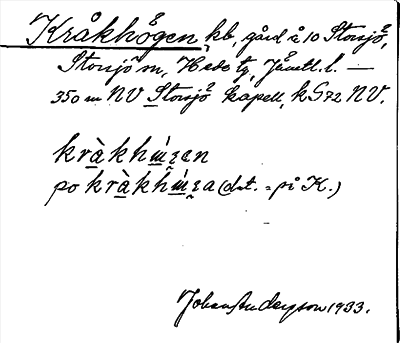 Kråkhögen, kb, gård å 10 Storsjö,
Storsjö sn, Hede tg, Jämtl. l. —
350 m NV Storsjö kapell, k G72 NV.
kràkhɯ́ɀen
po kràkhɯ́ɀa (dat. = på K.)
Johan Andersson 1933.